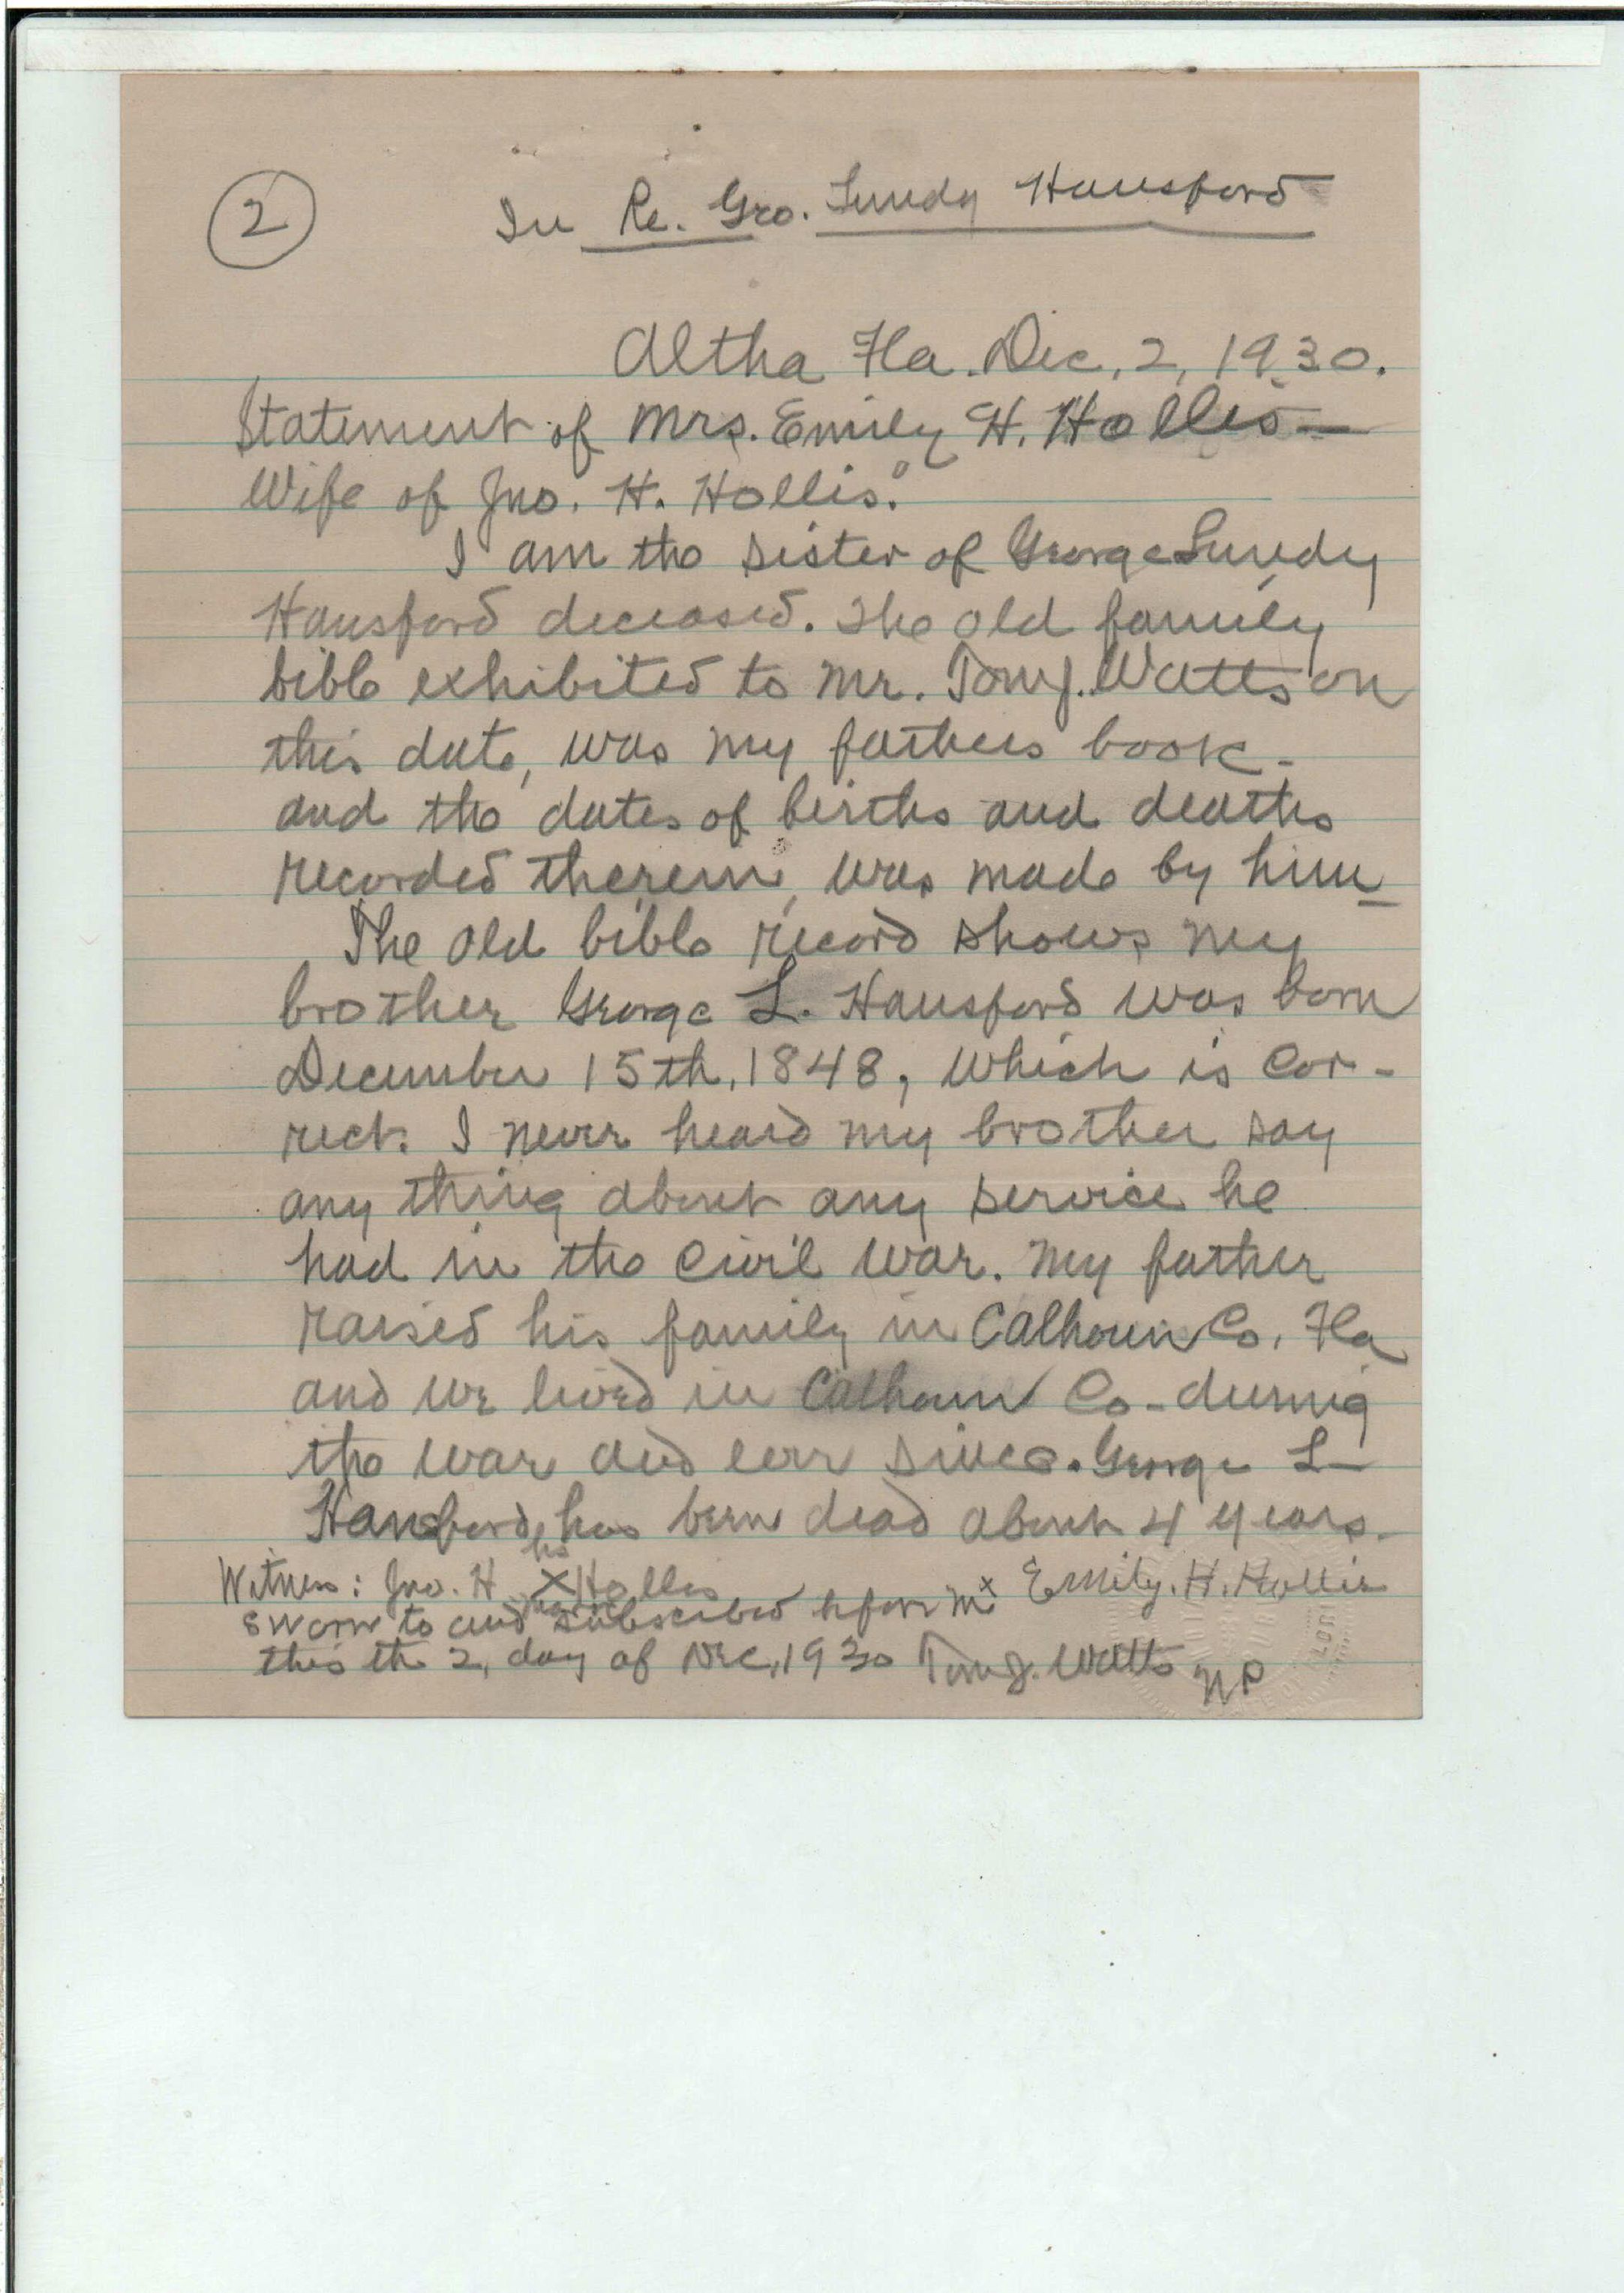 2
In Re. Geo. Lundy Hansford
Altha Fla. Dec, 2, 1930.
Statement of Mrs. Emily H. Hollis —
Wife of Jno. H. Hollis."
I am the sister of George Lundy
Hansford deceased. The old family
bible exhibited to Mr. Tom J. Watts on
this date, was my fathers book -
and the dates of births and deaths
recorded therein, was made by him
The old bible record shows my
brother George L. Hansford was born
December 15th, 1848, which is cor-
rect. I never heard my brother say
any thing about any service he
had in the civil war. My father
raised his family in Calhoun Co, Fla
and we lived in Calhoun Co - during
the war and ever since. George L
Hansford, has been dead about 4 years.
his
Witness: Jno. H X Hollis x Emily. H. Hollis
mark
Sworn to and subscribed before me
this the 2, day of Dec, 1930 Tom J. Watts NP